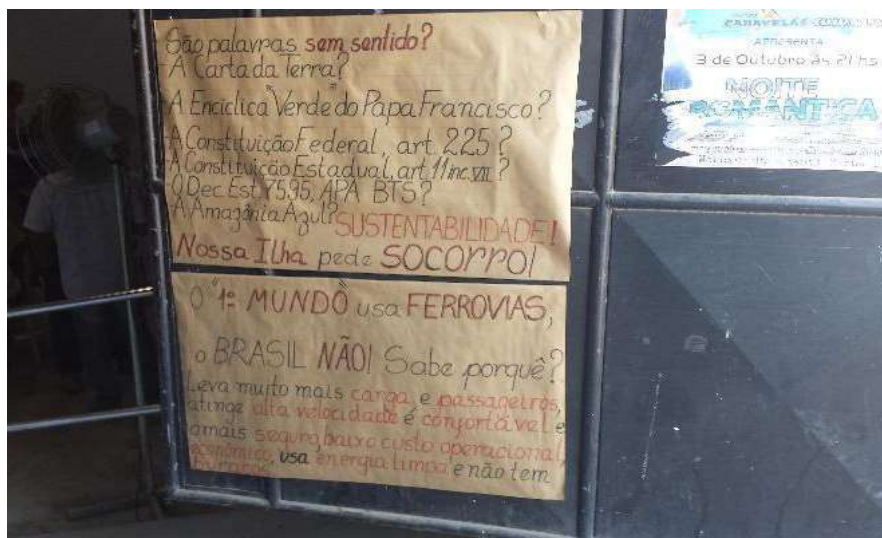 São palavras sem sentido?
A Carta da Terra?
A Encíclica "Verde" do Papa Francisco?
A Constituição Federal, art. 225?
A Constituição Estadual, art. 11 inc. VII?
O Dec. Est. 7595, APA BTS?
A Amazônia Azul? SUSTENTABILIDADE!
Nossa Ilha pede SOCORRO!
O "1º MUNDO" usa FERROVIAS,
o BRASIL NÃO! Sabe porquê?
Leva muito mais carga e passageiros,
atinge alta velocidade é confortável e
amais seguro, baixo custo operacional,
econômico, usa energia limpa e não tem
CARAVELAS
APRESENTA
3 de Outubro às 21hs
NOITE
ROMANTICA